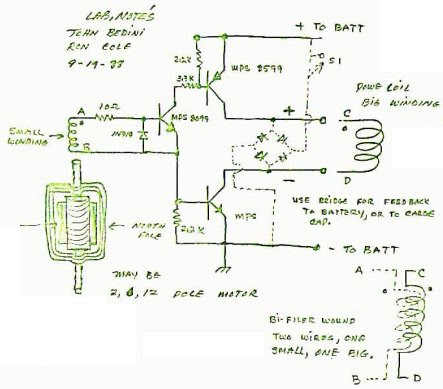 LAB, NOTES
JOHN BEDINI
RON COLE
9-14-83
+ TO BATT
2.2K
3.3K
MPS 8599
S1
10Ω
A
MPS 8099
SMALL
WINDING
1N914
B
+
POWE COIL
BIG WINDING
C
D
−
MPS
USE BRIDGE FOR FEEDBACK
TO BATTERY, OR TO CARGE
CAP.
NORTH
POLE
- TO BATT
MAY BE
POLE MOTOR
A
C
BI-FILER WOUND
TWO WIRES, ONE
SMALL, ONE BIG.
B
D